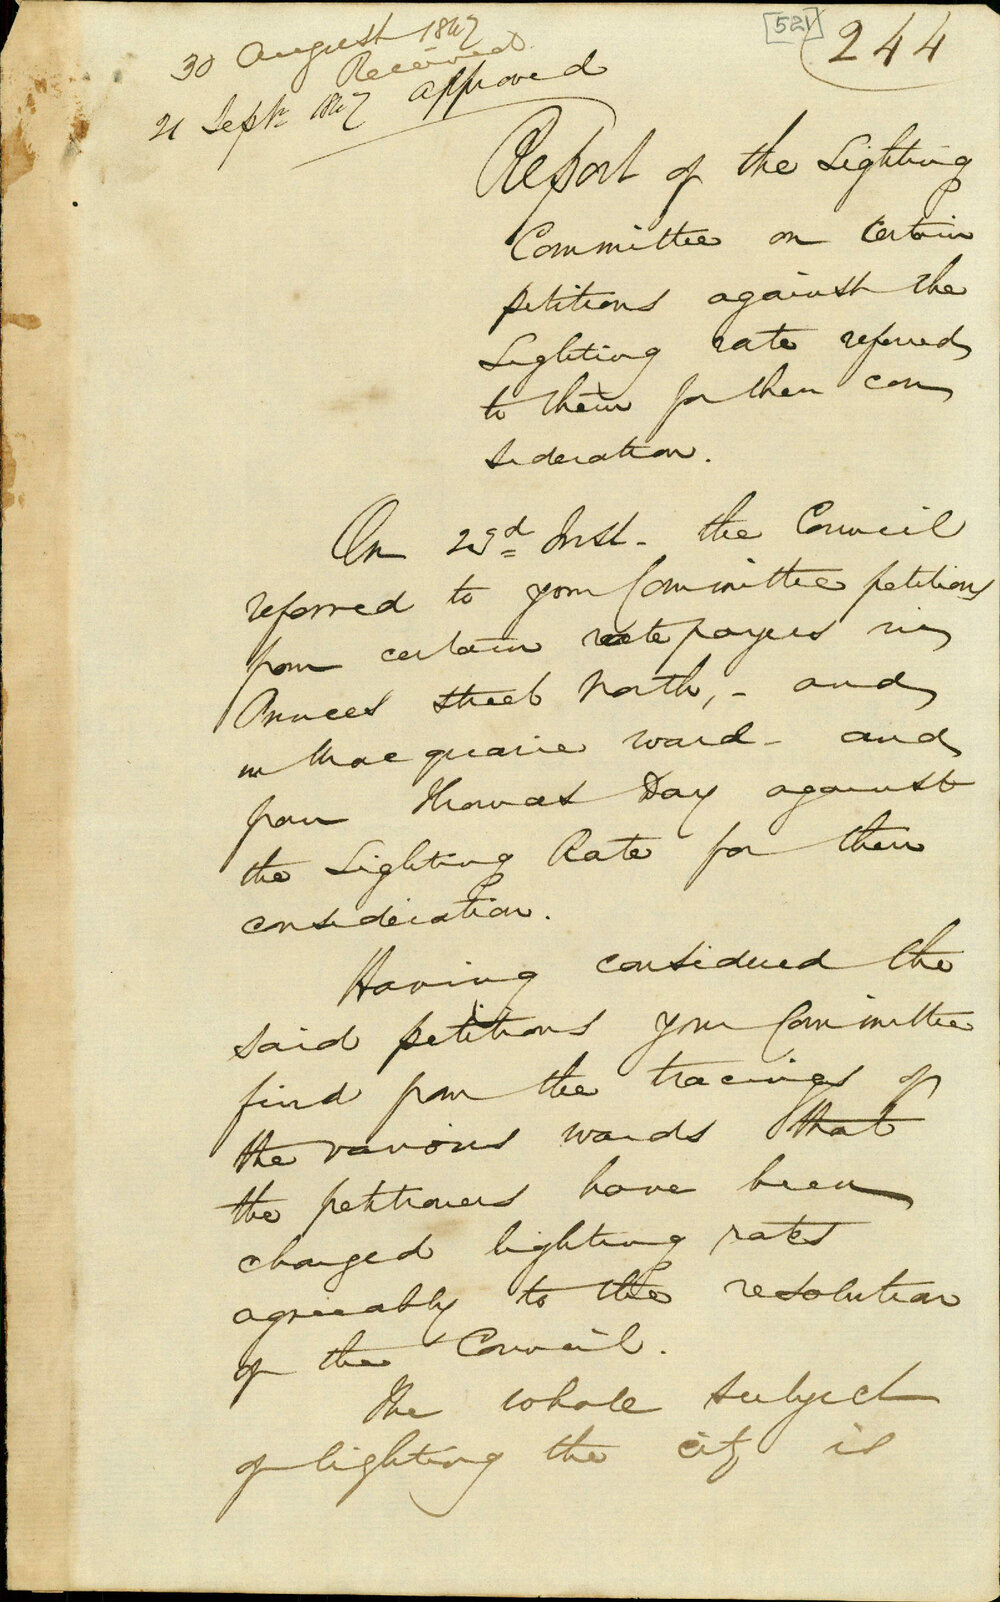 [521] 244
30 August 1867
Received
21 Septr. 1867 approved
Report of the Lighting
Committee on Certain
petitions against the
Lighting rate referred
to them for their con
sideration.
On 23rd Inst - the Council
referred to your Committee petitions
from certain ratepayers in
Princes Street North, - and
in Macquarie ward - and
from Thomas Day against
the Lighting Rate for their
consideration.
Having considered the
said petitions your Committee
find from the tracings of
the various wards that
the petitioners have been
charged lighting rates
agreeably to the resolution
of the Council.
The whole subject
of lighting the city is